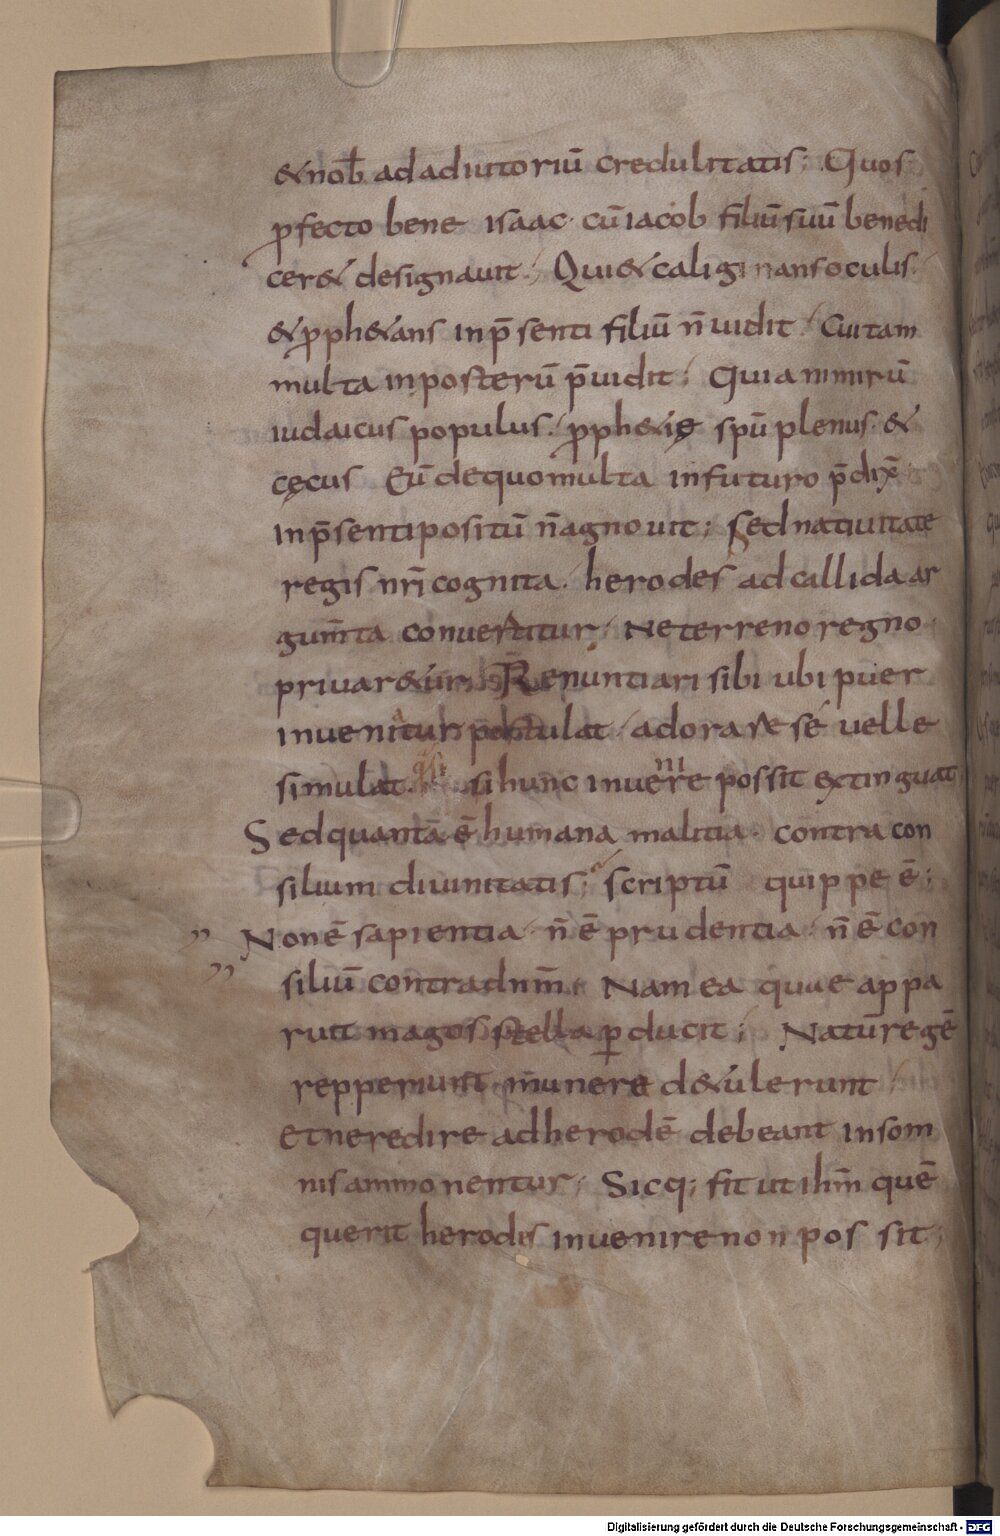 &nob̄ adadiutoriū credulitatis; Quos
ꝓfecto bene isaac· cū iacob filiū suū benedi
cer& designauit; Qui&caliginansoculis·
&ꝓph&ans inp̄senti filiū n̄uidit· Cuitam
multa inposterū p̄uidit; Quia nimirū
iudaicus populus· ꝓph&ię spū plenus· &
cęcus Eū dequomulta infuturo p̄dix̄
inp̄senti positū n̄agnouit; Sed natiuitate
regis nr̄i cognita· herodes ad callida ar
gum̄ta conuertitur· Ne terreno regno
priuar&ur· Renuntiari sibi ubi puer
inuenitur postulat· adorare se uelle
simulat· qsi si hunc inuenire possit extinguat
Sed quanta ē humana malitia· contra con
silium diuinitatis; scriptū quippe ē;
Non ē sapientia· n̄ ē prudentia· n̄ ē con
siliū contra dnm̄· Nam ea quae appa
ruit magos stella ꝑducit; Natū regē
repperiunt munere d&ulerunt
Et ne redire ad herodē debeant in som
nis ammonentur; Sicq; fit ut ihm̄ quē
querit herodis inuenire non pos sit;
Digitalisierung gefördert durch die Deutsche Forschungsgemeinschaft - DFG